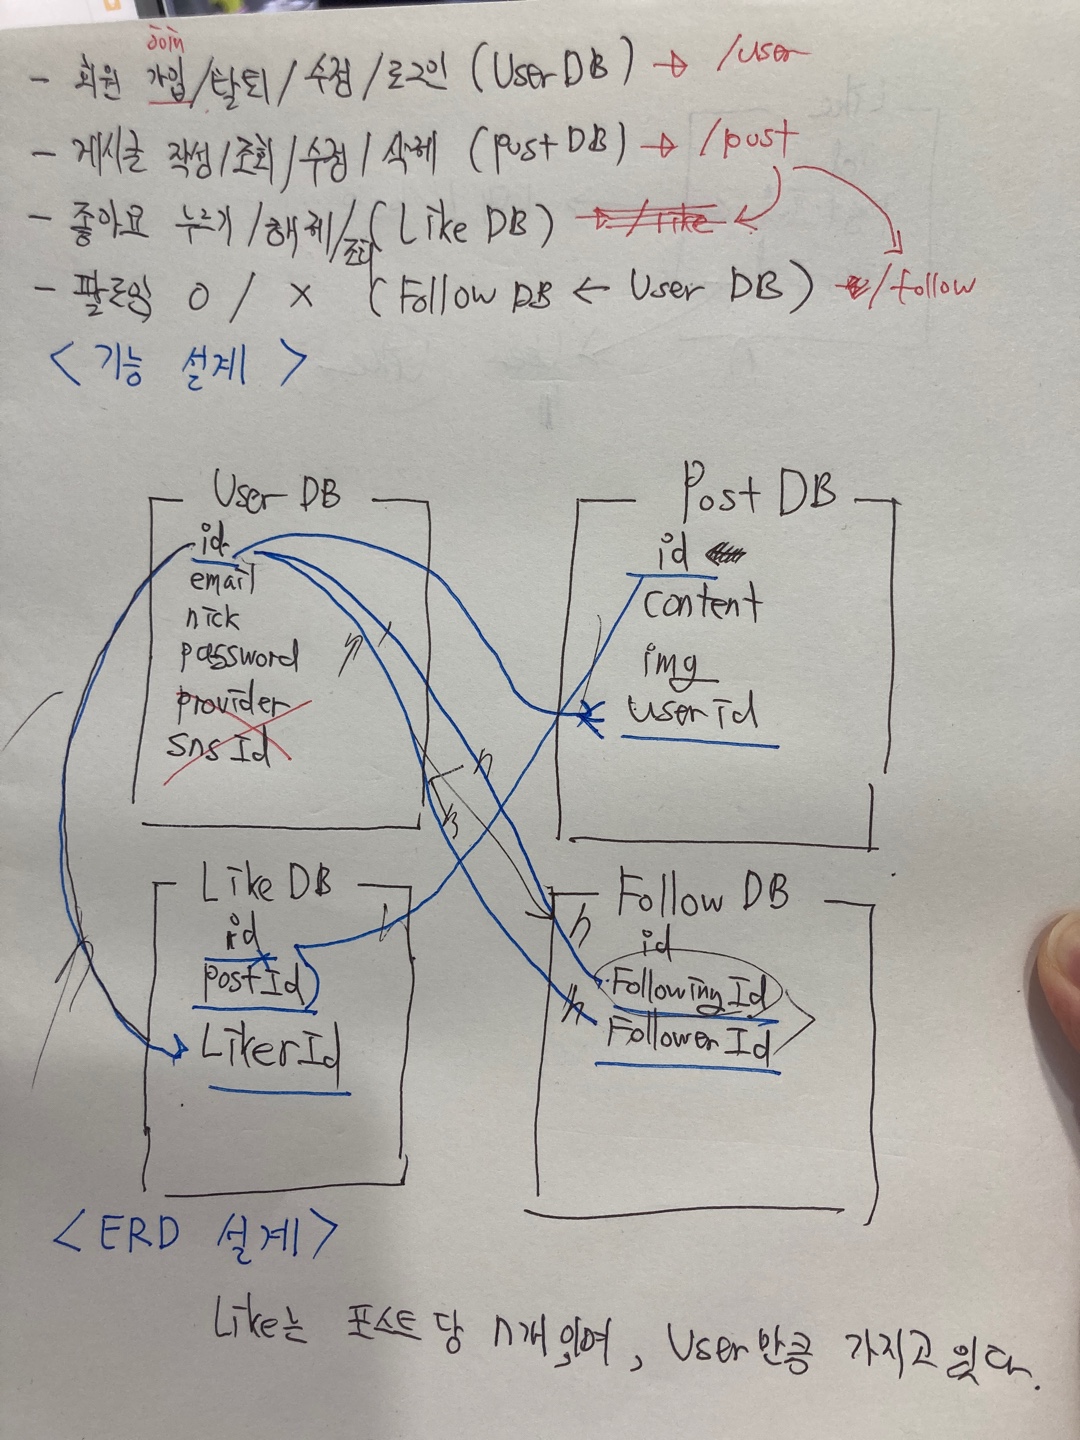 join
- 회원 가입/탈퇴/수정/로그인 (User DB) → /user
- 게시글 작성/조회/수정/삭제 (post DB) → /post
- 좋아요 누르기/해제/조회 (Like DB) → /like
- 팔로잉 O / X (Follow DB ← User DB) /follow
<기능 설계>
User DB
id
email
nick
password
provider
sns Id
Post DB
id
content
img
user id
n
n
Like DB
id
post Id
Liker Id
Follow DB
id
Following Id
Follower Id
n
n
<ERD 설계>
Like는 포스트 당 n개 있며, User만큼 가지고 있다.